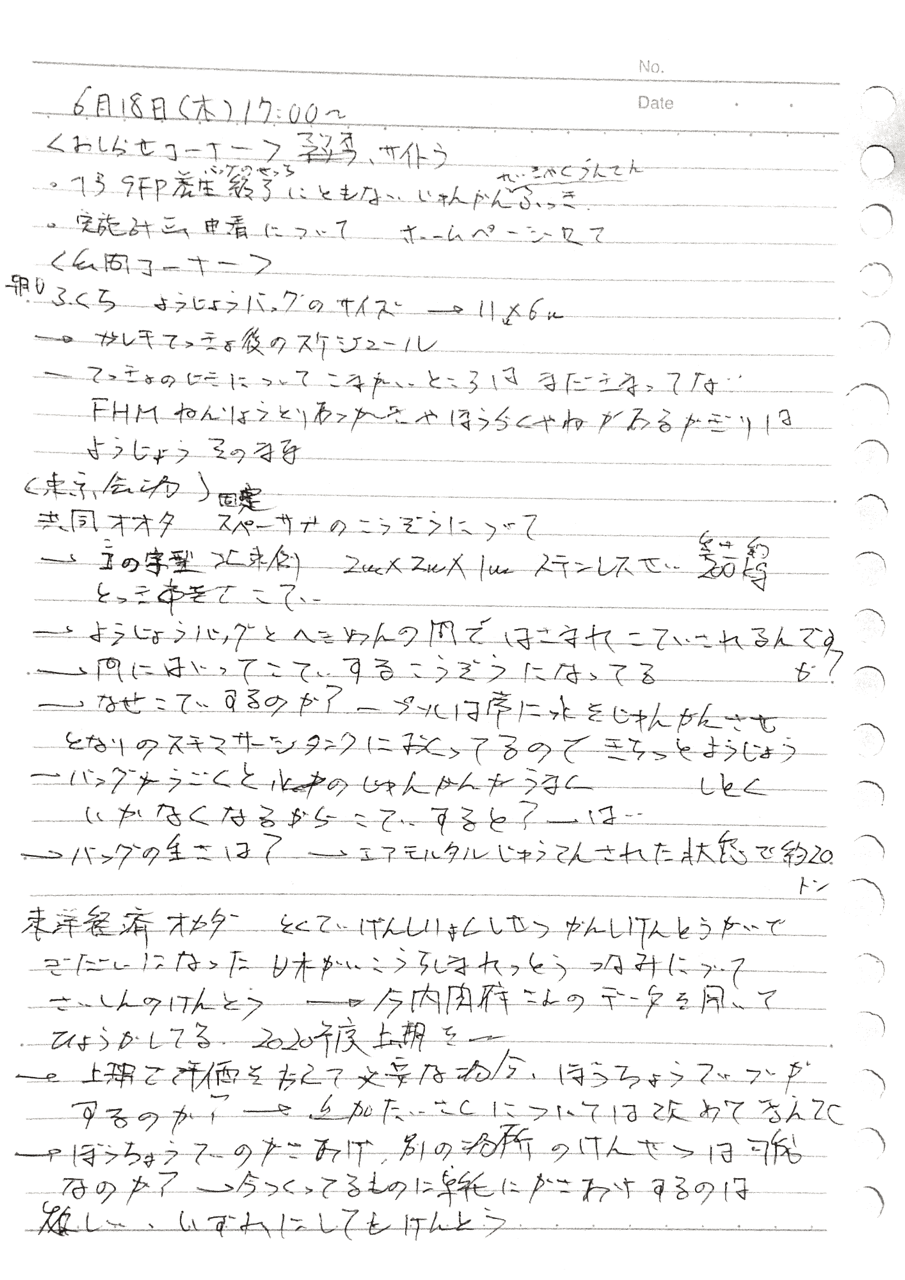 No.
Date
6月18日(木)17:00〜
<おしらせコーナー> サイトう
バッグのせっち れいきゃくうんてん
・1号SFP養生終了にともない じゅんかんふっき
・実施計画申請について ホームページにて
<質問コーナー>
朝日
ふくち ようじょうバッグのサイズ → 11×6m
→ ガレキてっきょ後のスケジュール
― てっきょのじきについてこまかいところは まだきまってな‥
FHM ねんりょうとりあつかいきやほうらくやねがあるかぎりは
ようじょう そのまま
(東京、会場)
固定
共同 オオタ スペーサナのこうぞうについて
→ 2m×2m×1m ステンレスせい 重さ 約200kg
こてい
→ ようじょうバッグとへきめんの間で はさまれ こていされるんです
か?
→ 間にはいってこていするこうぞうになってる
→ なぜこていするのか? ― プールは常に水をじゅんかんさせ
となりのスキマサージタンクにおくってるので きちっとようじょう
しとく
― バッグがうごくと 水のじゅんかんがうまく
いかなくなるから こていすると? ― は‥
→ バッグの重さは? → エアモルタルじゅうてんされた状態で約20
トン
東洋経済 オカダ とくていげんしりょくしせつ かんしけんとうかいで
ぎだいになった 日本かいこうちしまれっとう つなみについて
さいしんのけんとう → 今内閣府 のデータを用いて
ひょうかしてる. 2020年度上期を―
→ 上期で評価をおえて必要な場合、ぼうちょうてい が
するのか? → 追加たいさくについては改めて考えてく
→ ぼうちょうていのかさあげ、別の場所のけんせつは可能
なのか? → 今つくってるものに単純にかさあげするのは
難しい‥、いずれにしてもけんとう